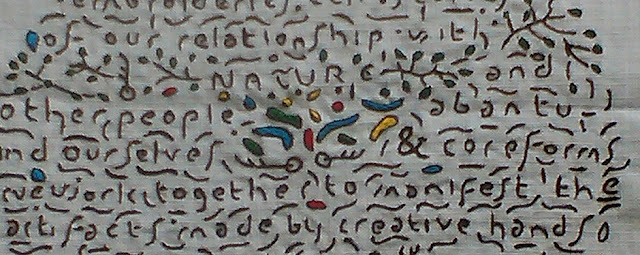 of our relationship with
NATURE and
other people abantu
and ourselves, & coreforms
work together to manifest the
artifacts made by creative hands